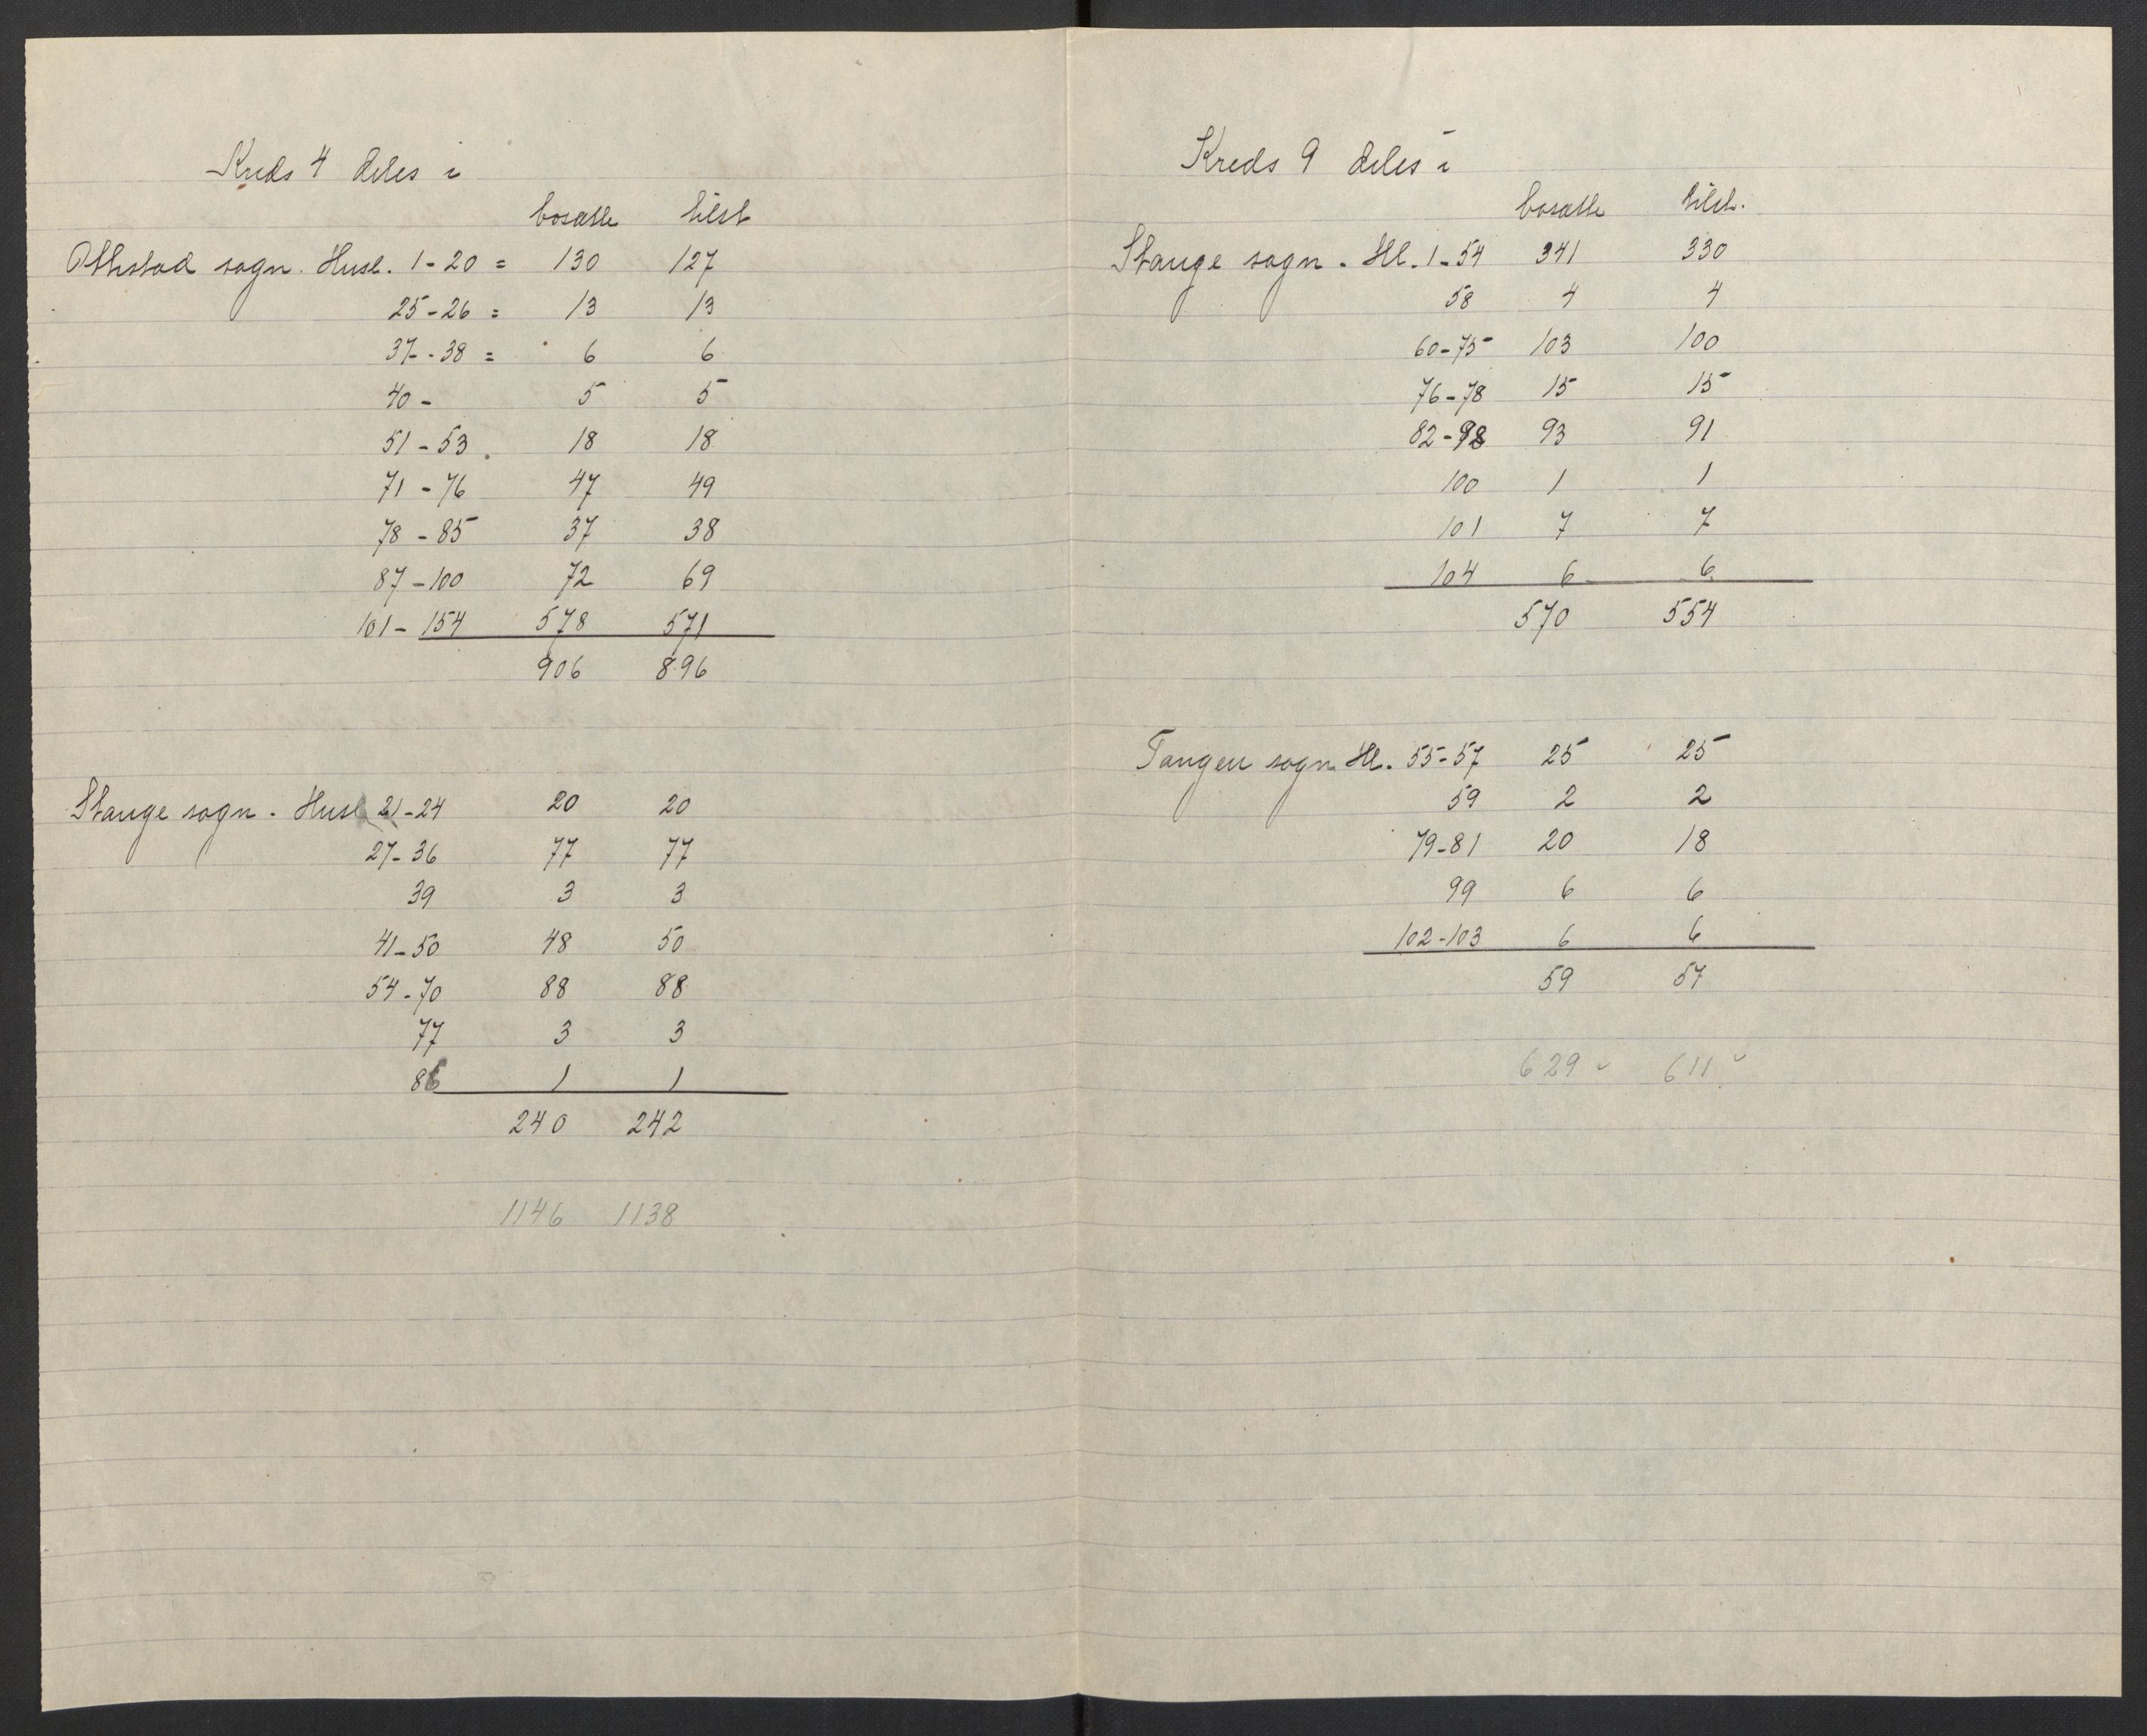 Kreds 4 deles i
bosatte tilst
Ottestad sogn. Husl. 1-20 = 130 127
25-26 = 13 13
37-38 = 6 6
40- 5 5
51-53. 18 18
71-76 47 49
78-85 37 38
87-100 72 69
101-154 578 571
906 896
Stange sogn. Husl 21-24 20 20
27-36 77 77
39 3 3
41-50 48 50
54-70 88 88
77 3 3
86 1 1
240 242
1146 1138
Kreds 9 deles i
bosatte tilst.
Stange sogn. Hl. 1-54 341 330
58 4 4
60-75 103 100
76-78 15 15
82-98 93 91
100 1 1
101 7 7
104 6 6
570 554
Tangen sogn Hl. 55-57 25 25
59 2 2
79-81 20 18
99 6 6
102-103 6 6
59 57
629 611